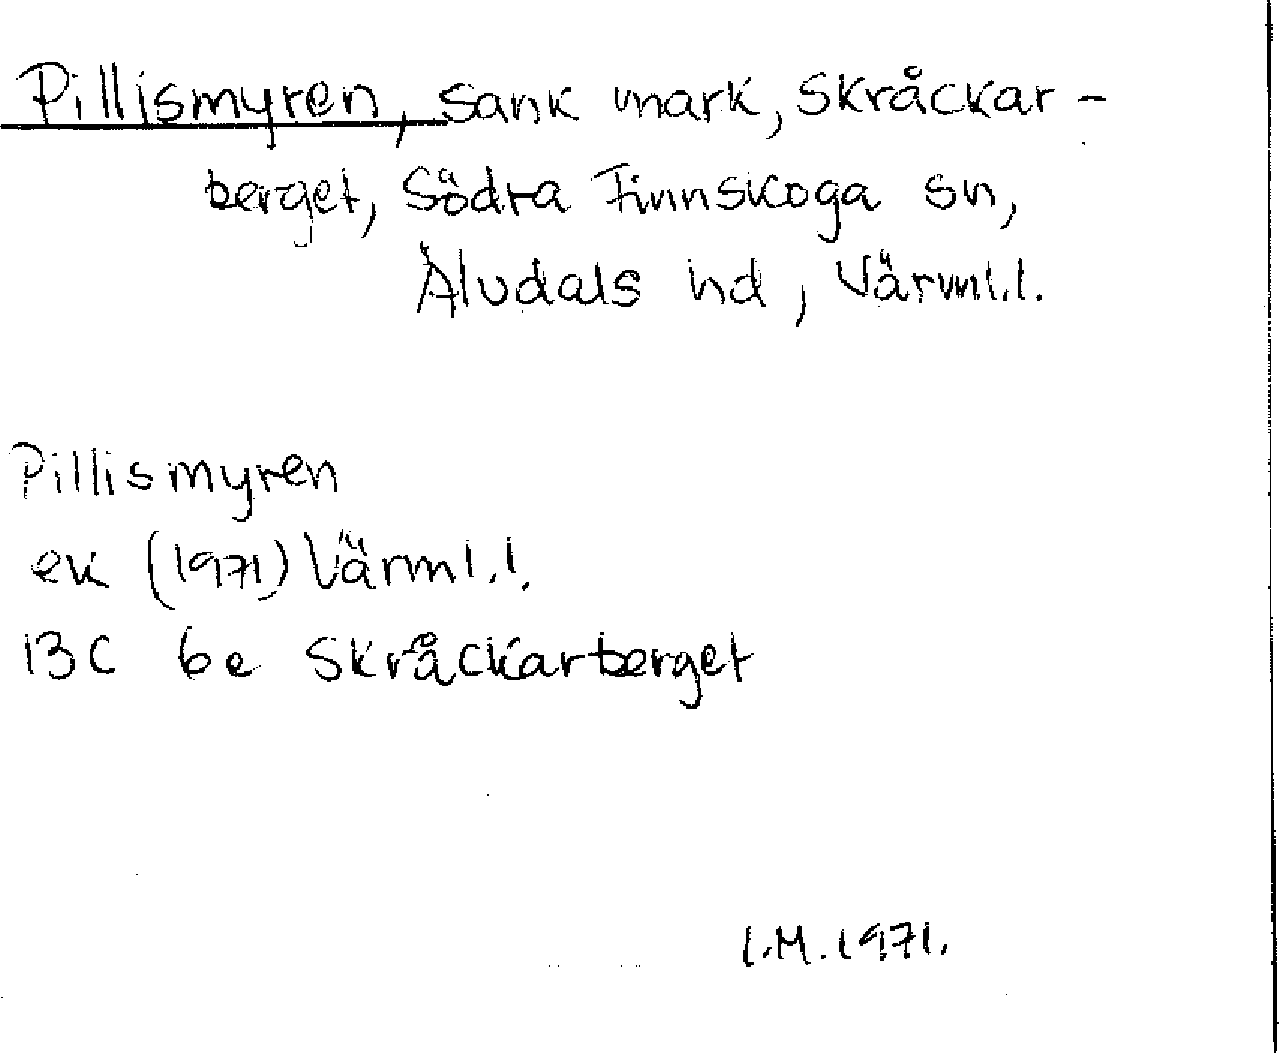 Pillismyren, sank mark, Skråckar-
berget, Södra Finnskoga sn,
Älvdals hd, Värml.l.
Pillismyren
ek (1971) Värml.l.
13C 6e Skråckarberget
I.M.1971.